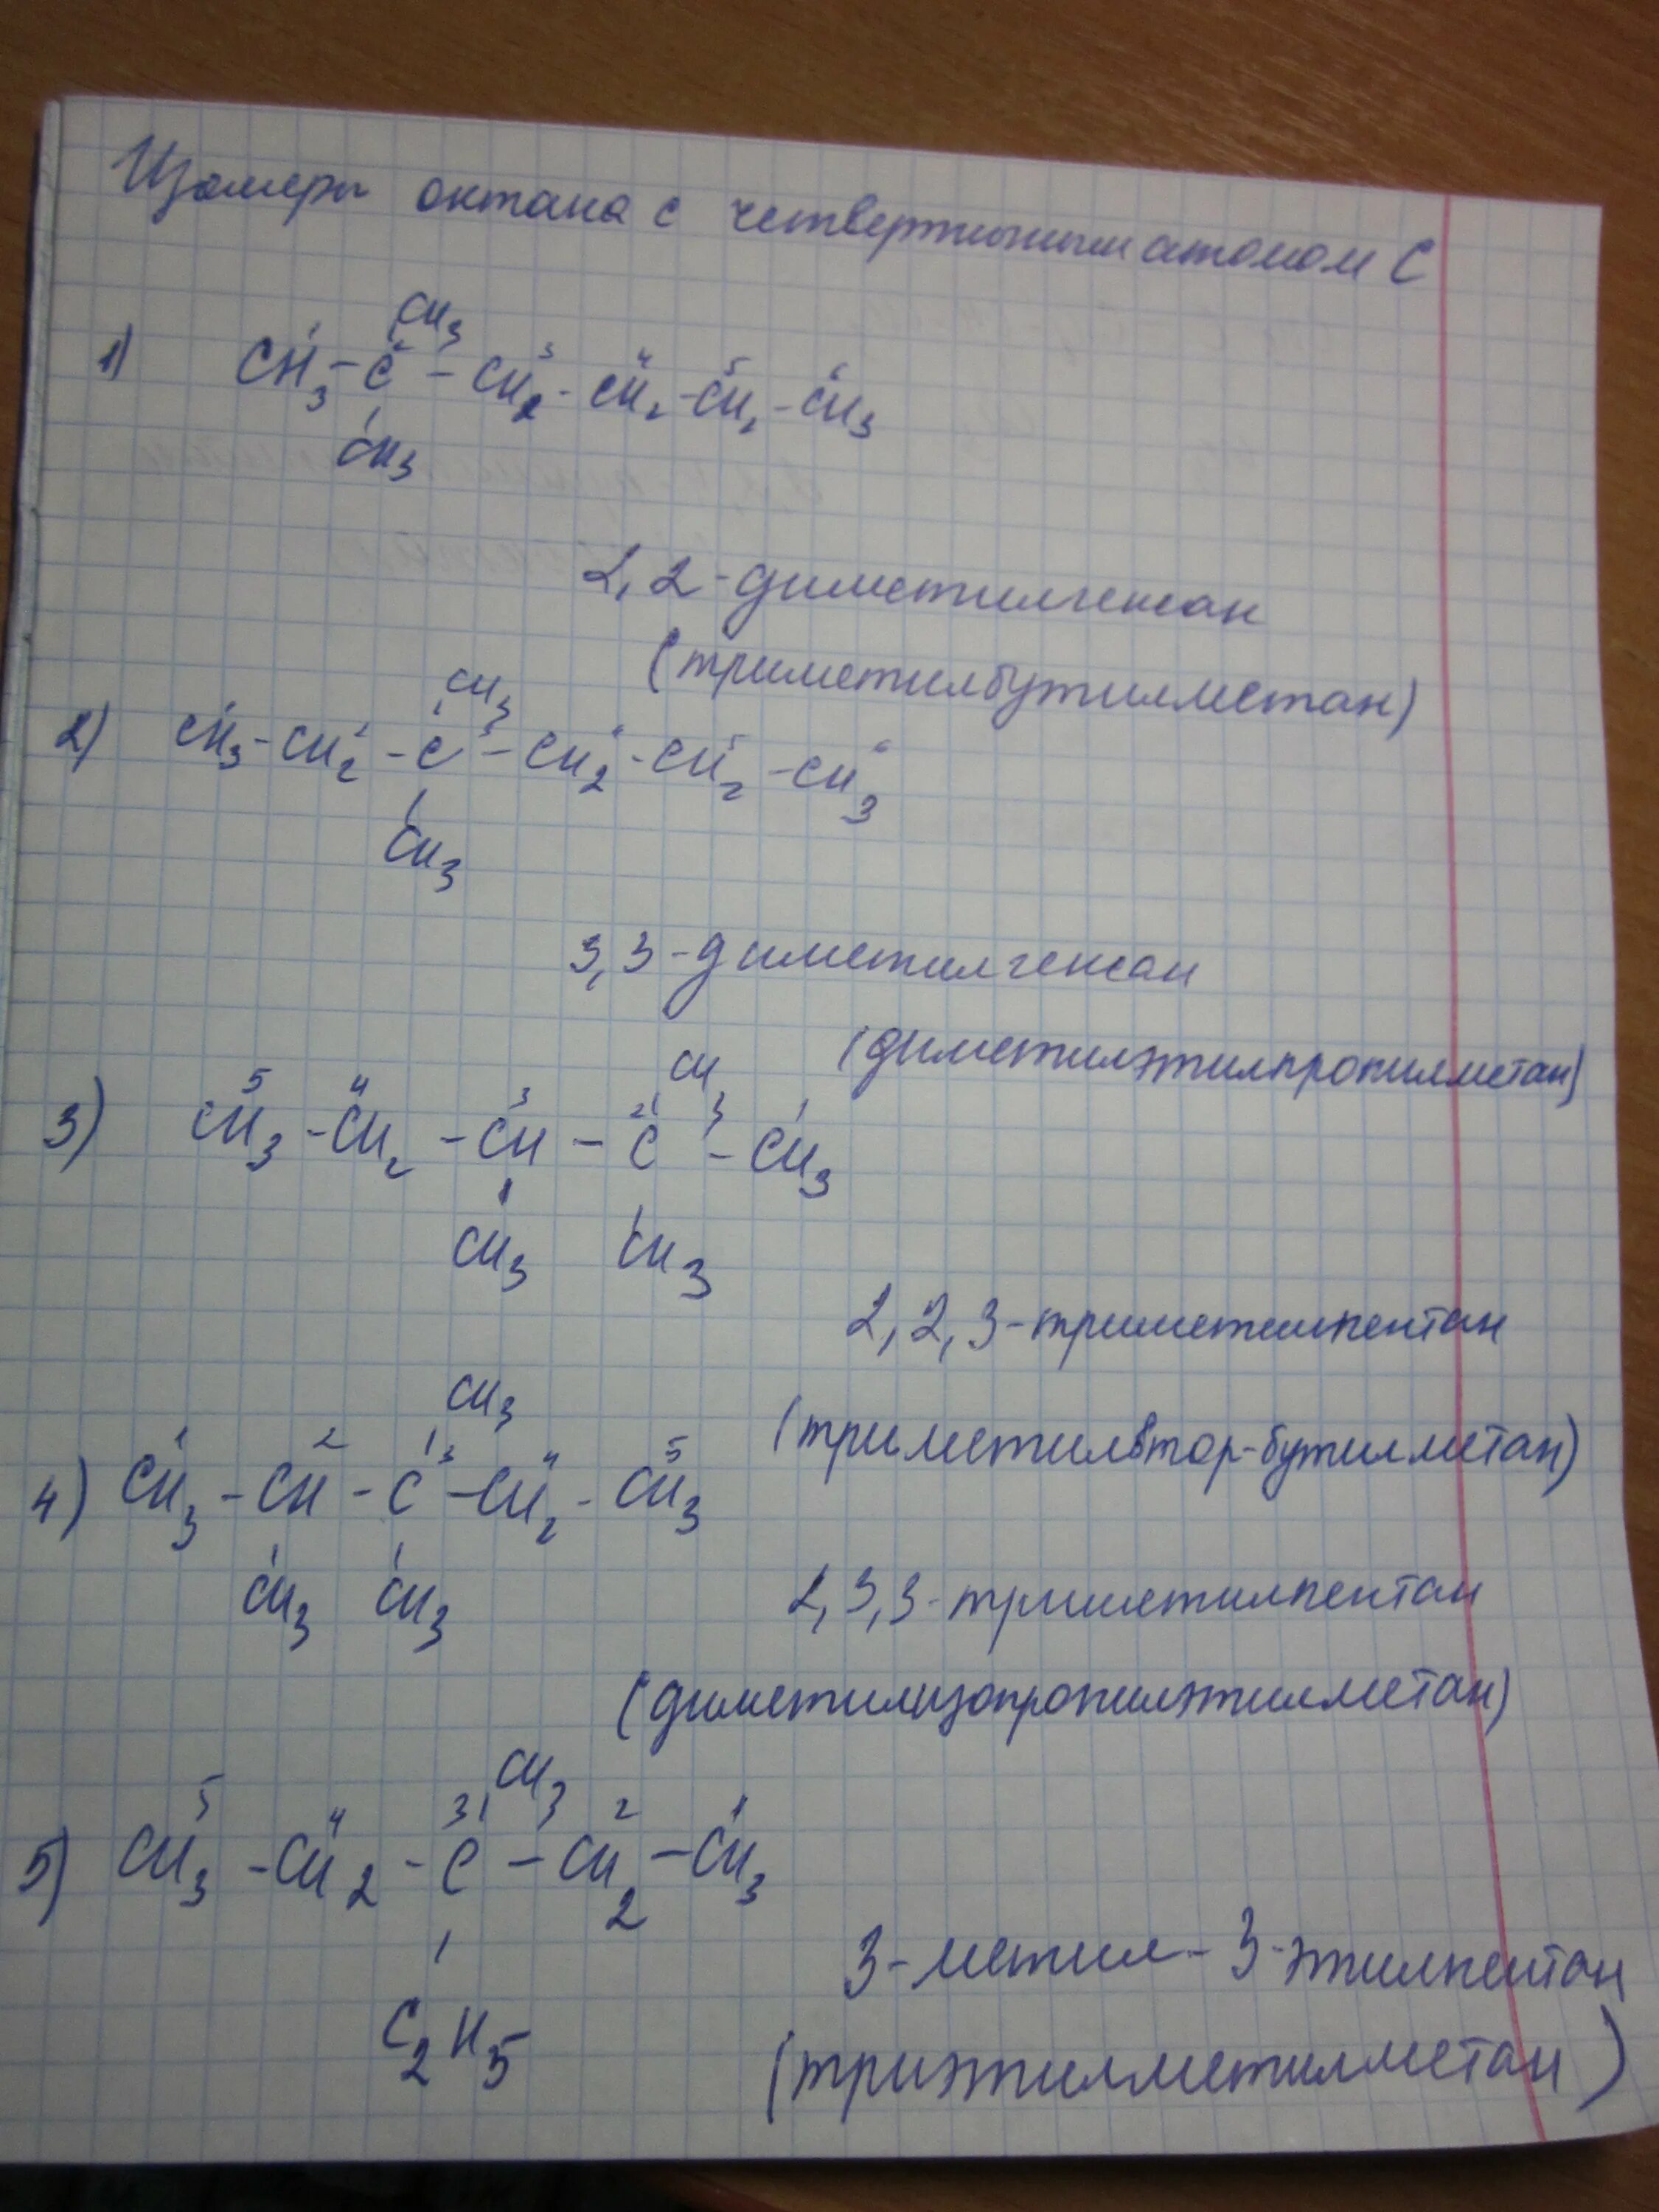 Изомеры октана с четвертичным атомом С
CH3
1) CH3 - C - CH2 - CH2 - CH2 - CH3
1 2 3 4 5 6
CH3
2,2-диметилгексан
(триметилбутилметан)
CH3
2) CH3 - CH2 - C - CH2 - CH2 - CH3
1 2 3 4 5 6
CH3
3,3-диметилгексан
(диметилэтилпропилметан)
CH3
5 4 3 2 1
3) CH3 - CH2 - CH - C - CH3
CH3 CH3
2,2,3-триметилпентан
(триметилвтор-бутилметан)
CH3
1 2 3 4 5
4) CH3 - CH - C - CH2 - CH3
CH3 CH3
2,3,3-триметилпентан
(диметилизопропилэтилметан)
CH3
5 4 3 2 1
5) CH3 - CH2 - C - CH2 - CH3
C2H5
3-метил-3-этилпентан
(триэтилметилметан)